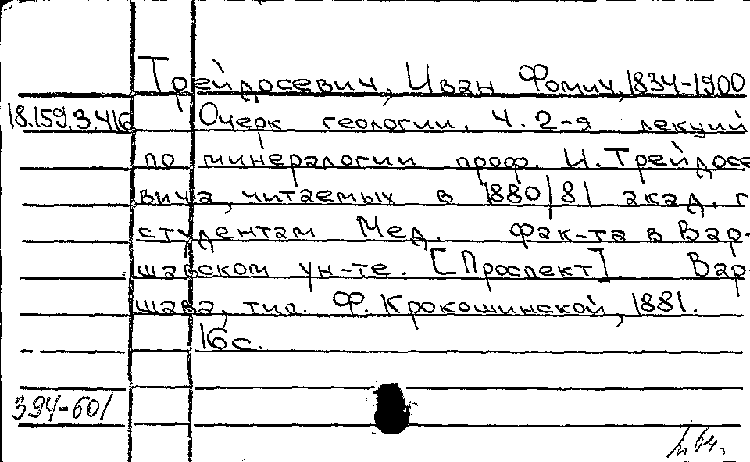 Трейдосевич, Иван Фомич, 1834-1900
18.159.3.416 Очерк геологии. Ч. 2-я лекций
по минералогии проф. И. Трейдосе-
вича, читаемых в 1880/81 акад. г.
студентам Мед. фак-та в Вар-
шавском ун-те. [Проспект] Вар-
шава, тип. Ф. Крокошинской, 1881.
16с.
394-601